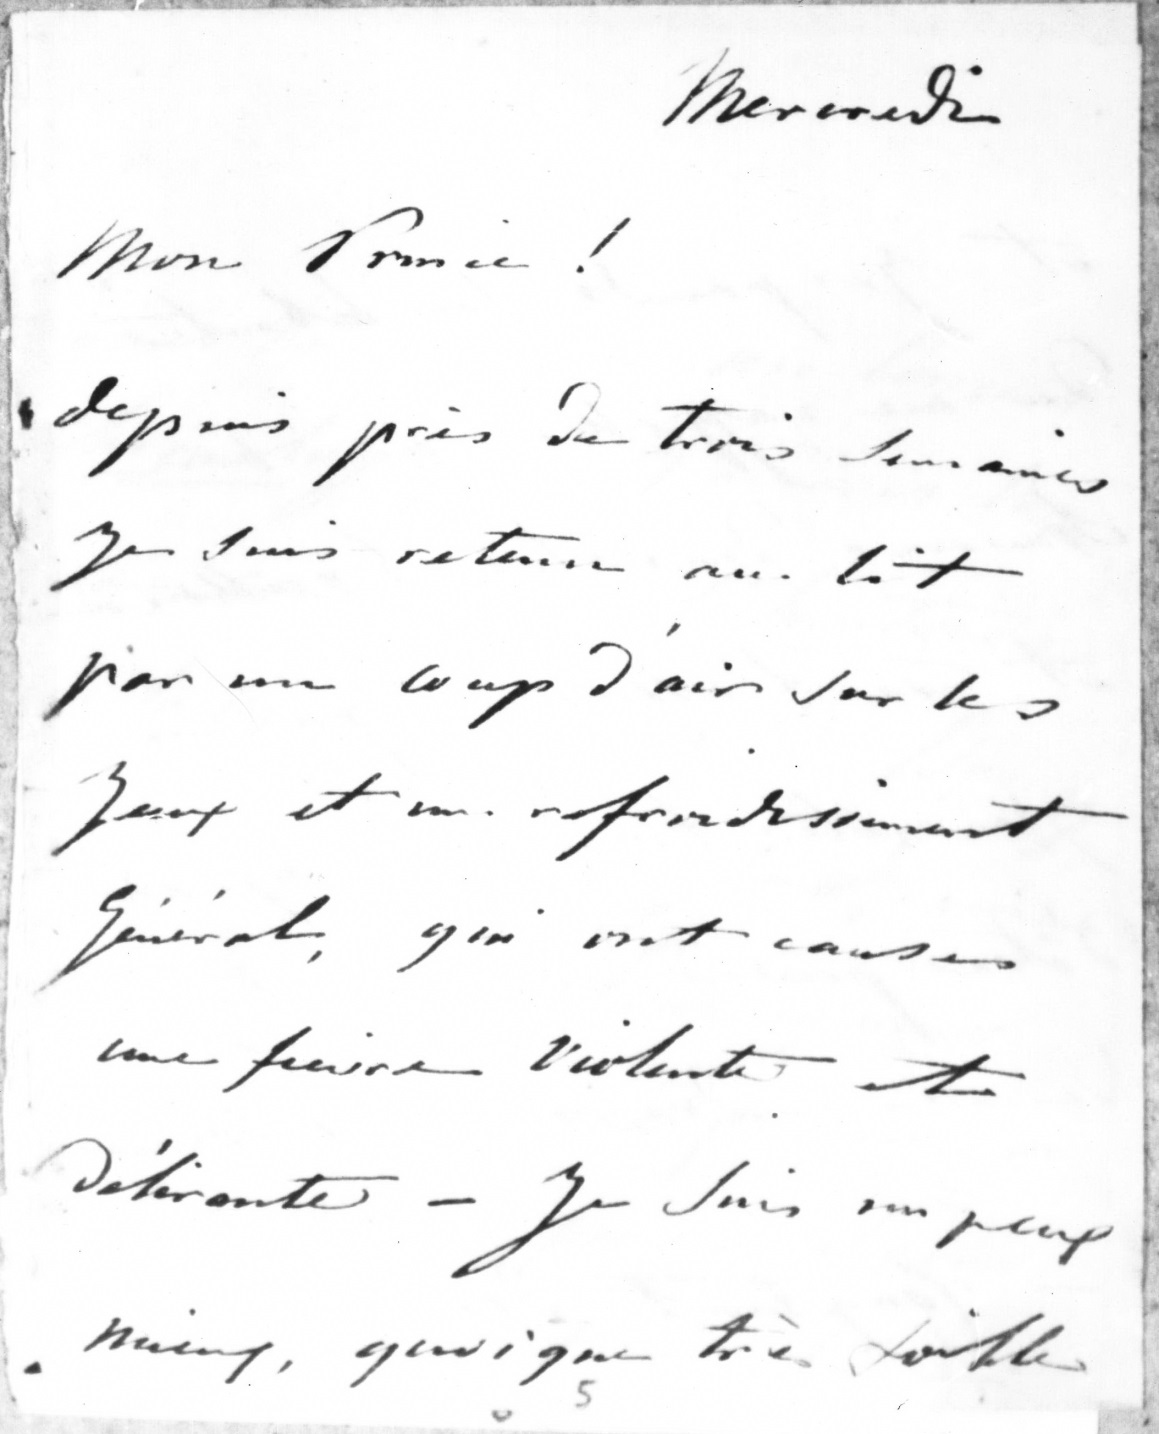 Mercredi
Mon Prince !
depuis près de trois semaines
je suis retenu au lit
par un coup d'air sur les
yeux et un refroidissement
général, qui ont causés
une fievre violente et
délirante – Je suis un peux
mieux, quoique très faible
5